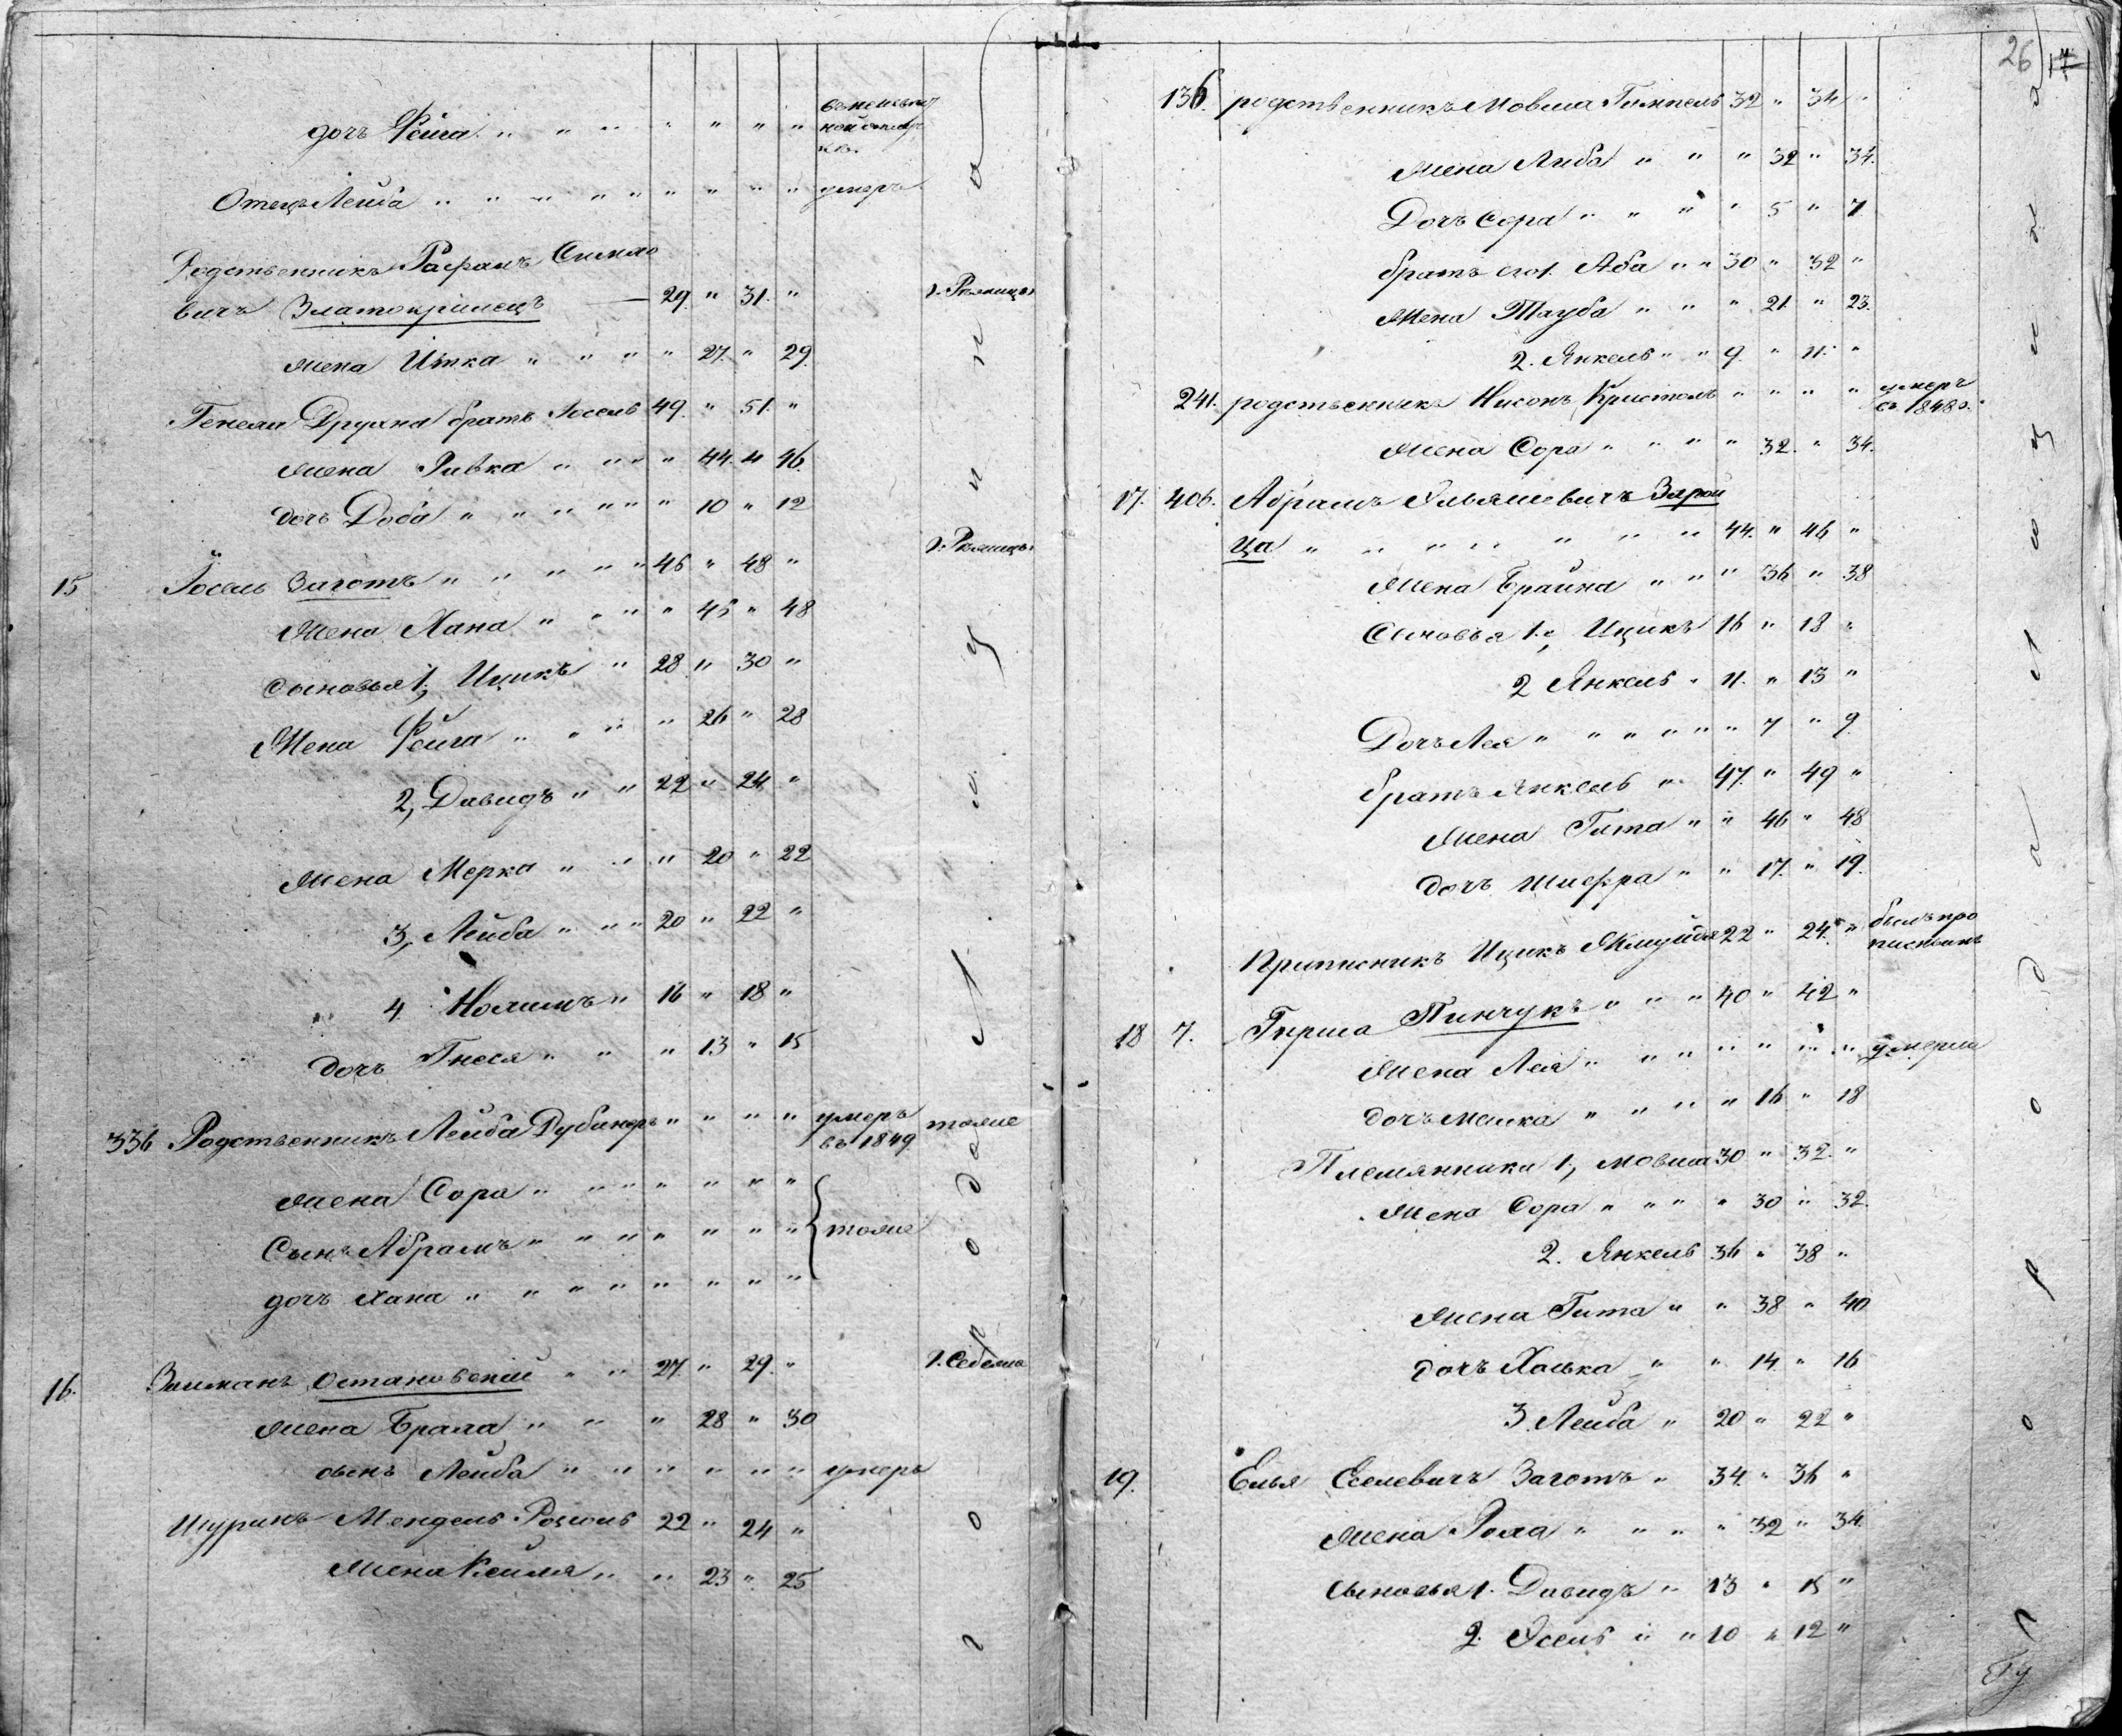 дочь Фейга " " " " " " " въ неизвѣст
ной отлуч
кѣ.
Отецъ Лейба " " " " " " " " " умеръ
Родственникъ Рафаилъ
вичъ Златокрилецъ — 29. " 31. " г. Рѣжицы
жена Итка " " " " 27. " 29.
Генели Друяна братъ Іосель 49. " 51. "
жена Ривка " " " " 44. " 46.
дочь Доба " " " " " " 10 " 12
г. Рѣжицы
15 Іосель Заготъ " " " " " 46 " 48 "
Жена Хана " " " " 46 " 48
сыновья 1, Ицикъ " 28 " 30 "
Жена Фейга " " " " 26 " 28
2, Давидъ " " 22 " 24 "
жена Мерка " " " 20 " 22
3, Лейба " " " 20 " 22 "
4 " 16 " 18 "
дочь Гнеся " " " 13 " 15
336 Родственникъ Лейба Дубинеръ " " " " умеръ тоже
въ 1849
жена Сора " " " " " " "
Сынъ Абрамъ " " " " " " " тоже
дочь Хана " " " " " " " "
16. Зиманъ Остановскій " " 27. " 29. " г. Себежа
жена Брала " " " 28 " 30
сынъ Лейба " " " " " " умеръ
Шуринъ Мендель 22 " 24 "
жена Кейля " " 23 " 25
26 17
136. родственникъ Мовша Гимпель 32 " 34 "
жена Либа " " " 32 " 34.
Дочь Сора " " " " 5 " 7
братъ его 1. Аба " " 30 " 32 "
Жена Тауба " " " 21. " 23.
2. Янкель " " 9. " 11. "
241. родственникъ Нисонъ Кристоль " " " " умеръ
въ 1848 г.
жена Сора " " " " 32. " 34.
17. 406. Абрамъ Зарой
ца " " " " " " " 44. " 46 "
Жена Брайна " " " 36 " 38
Сыновья 1., Ицикъ 16 " 18 "
2 Янкель " 11. " 13 "
Дочь Лея " " " " " " 7 " 9
братъ Янкель " 47. " 49 "
жена Гита " " 46 " 48
дочь Шифра " " 17. " 19.
Приписникъ Ицикъ 22 " 24. " былъ про
писнымъ
18 7. Гирша Пинчукъ " " " 40 " 42 "
Жена Лея " " " " " " " умерла
дочь Малка " " " " 16 " 18
Племянники 1, Мовша 30 " 32. "
Жена Сора " " " " 30 " 32.
2. Янкель 36 " 38 "
жена Гита " " 38 " 40
дочь Холька " " 14 " 16
3. Лейба " 20 " 22 "
19. Елья Еселевичъ Заготъ " 34. " 36 "
жена Рома " " " " 32 " 34.
сыновья 1. Давидъ " 13 " 15 "
2. Осель " " 10 " 12 "